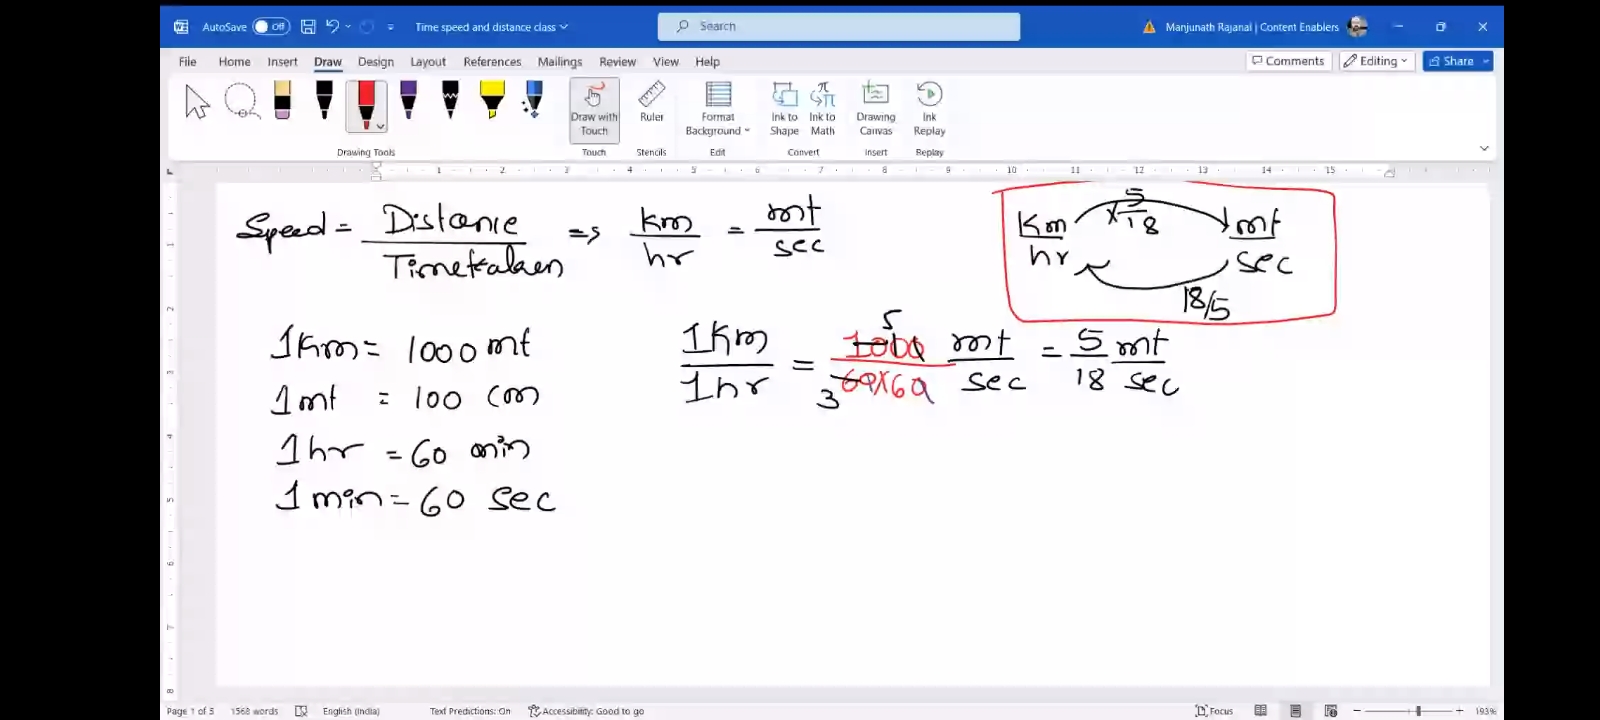 AutoSave Off Time speed and distance class Search Manjunath Rajanal | Content Enablers
File Home Insert Draw Design Layout References Mailings Review View Help Comments Editing Share
Draw with Touch Ruler Format Background Ink to Shape Ink to Math Drawing Canvas Ink Replay
Drawing Tools Touch Stencils Edit Convert Insert Replay
1 2 3 4 5 6 7 8 9 10 11 12 13 14 15
Speed = Distance / Timetaken => km/hr = mt/sec
Km/hr ×5/18 mt/sec
18/5
1Km = 1000 mt
1mt = 100 cm
1hr = 60 min
1min = 60 sec
1Km/1hr = 1000/60×60 mt/sec = 5/18 mt/sec
5
3
Page 1 of 5 1568 words English (India) Text Predictions: On Accessibility: Good to go Focus 193%